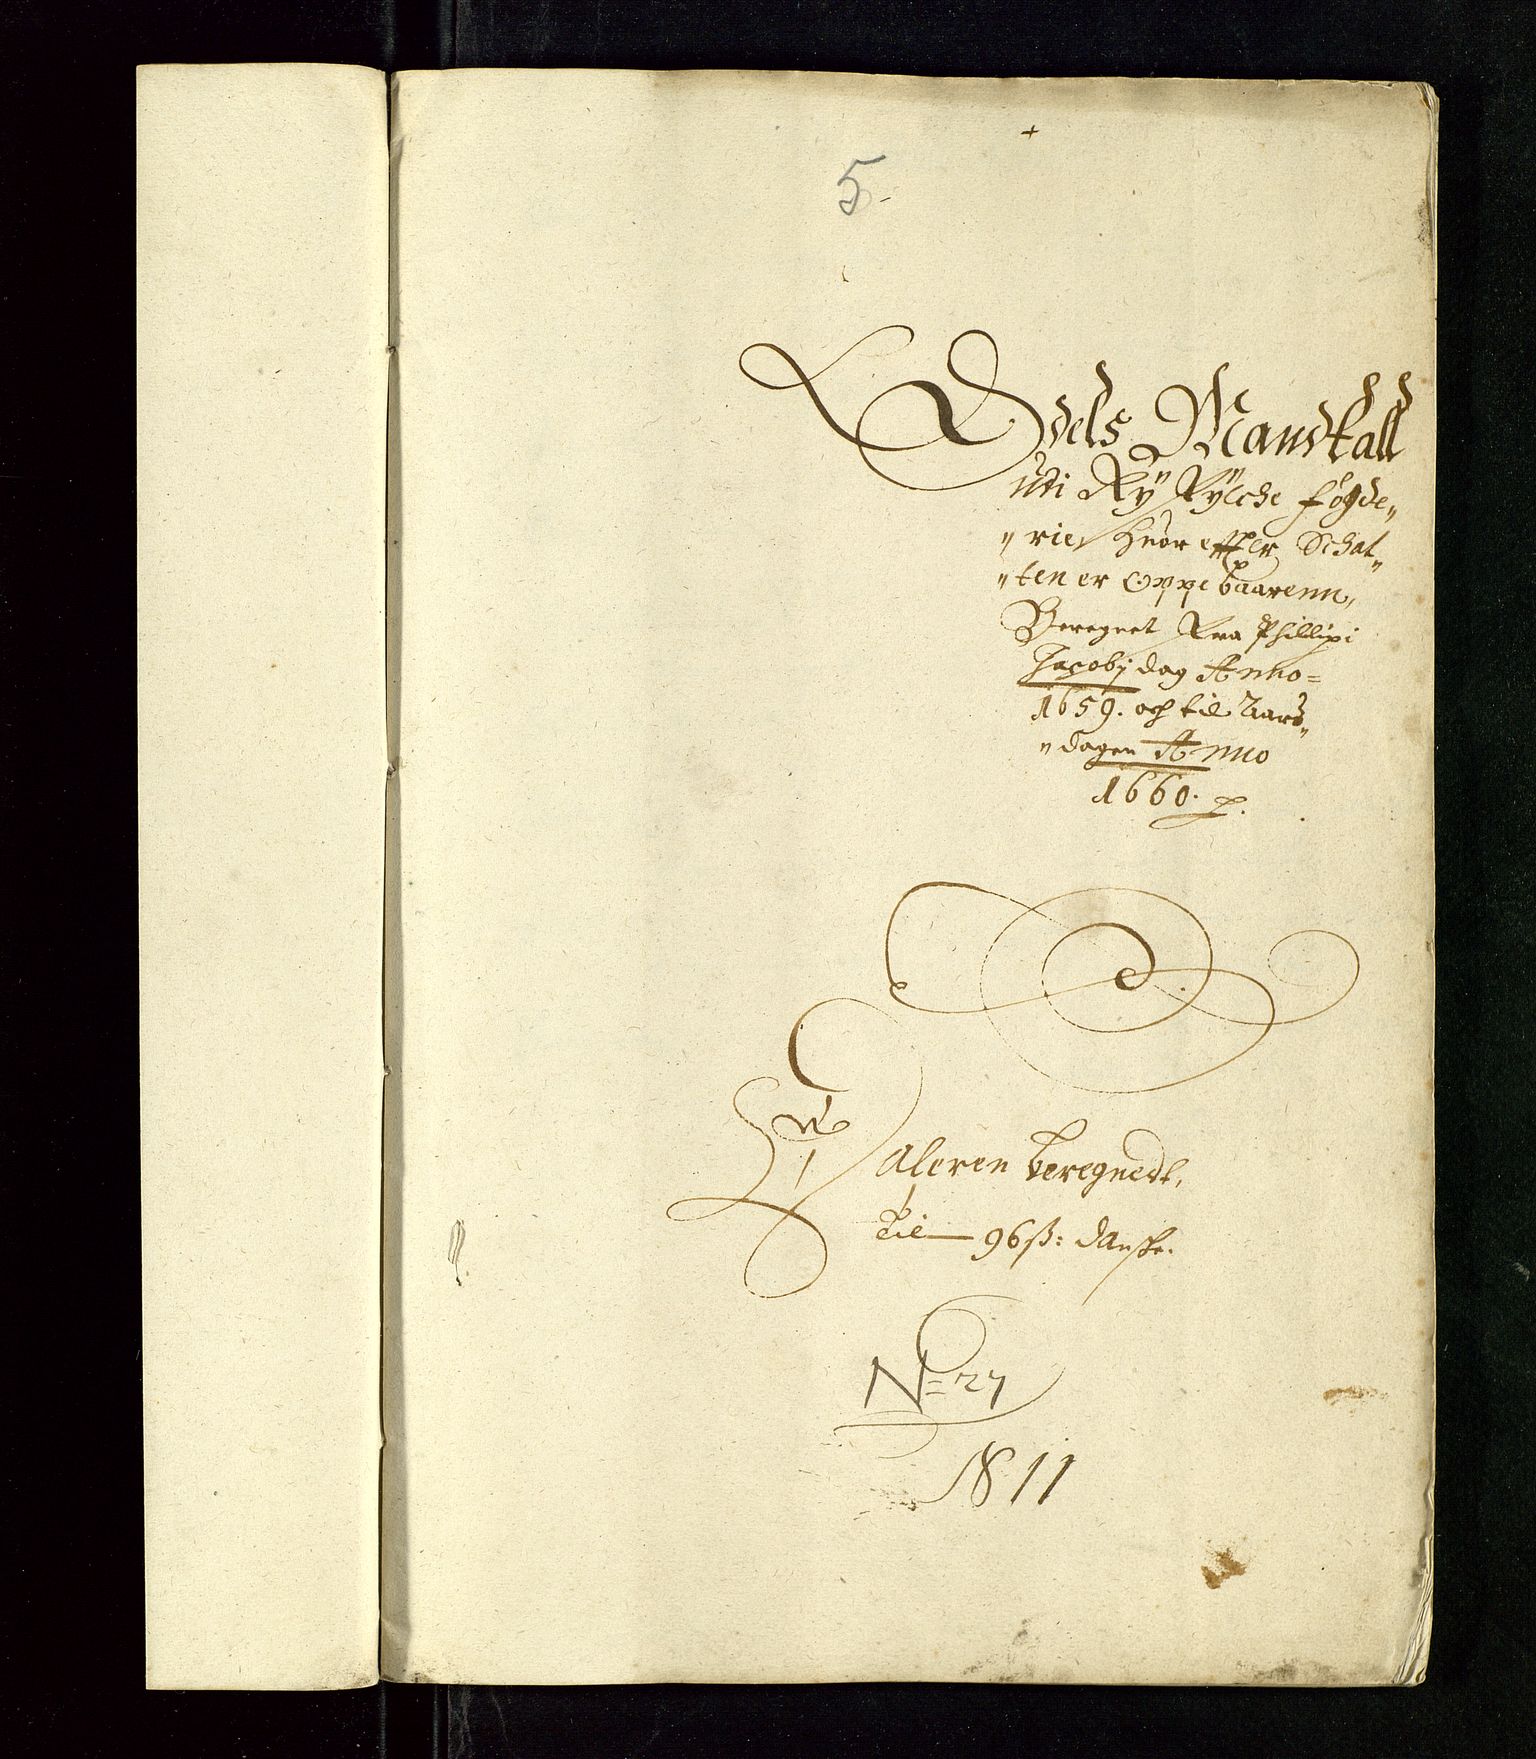 5
Odels Mandtall
udi Ry Fylche fögde„
„rie, huor effter Schat„
„ten er oppebaarenn,
Beregnet Fra Phillipi
Jacobj dag Anno=
1659. och til Aars„
„dagen Anno
1660.
Daleren beregnedt,
til— 96 ß: danske.
N= 27
N 11